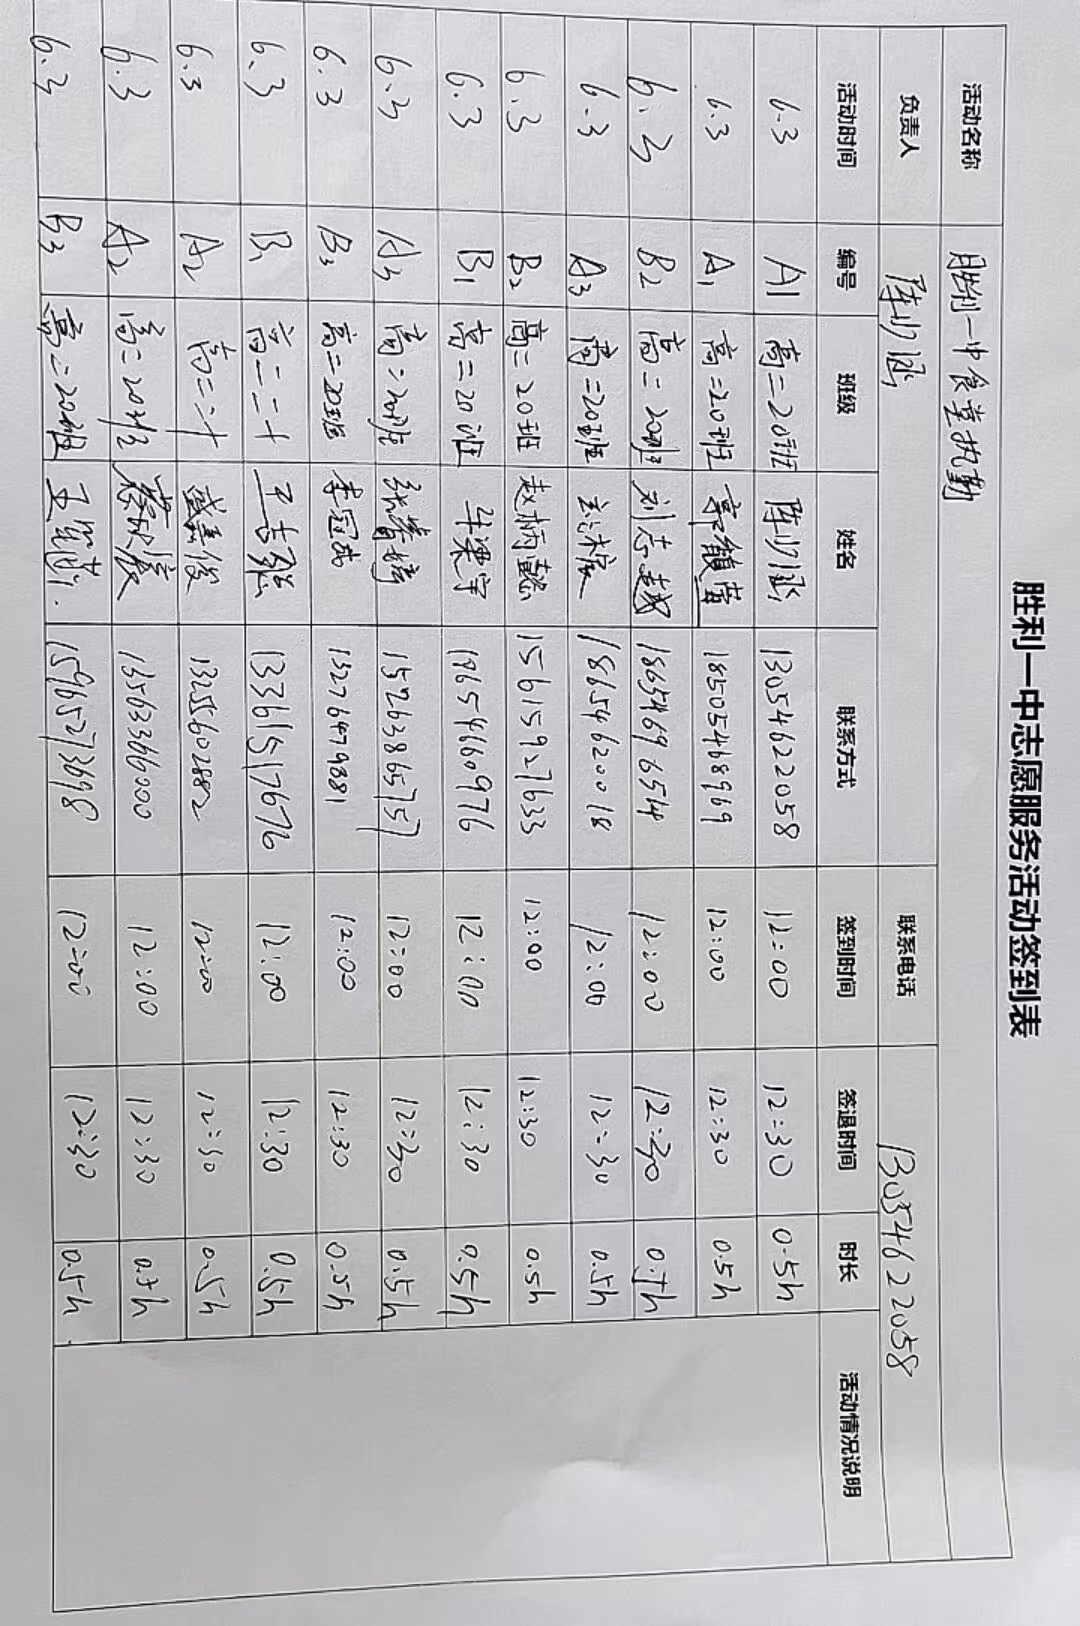 胜利一中志愿服务活动签到表
活动名称 胜利一中食堂执勤
负责人 联系电话 13054622058
活动时间 编号 班级 姓名 联系方式 签到时间 签退时间 时长 活动情况说明
6.3 A1 高二20班 13054622058 12:00 12:30 0.5h
6.3 A1 高二20班 郭馥萱 18505468969 12:00 12:30 0.5h
6.3 B2 高二20班 刘志越 18654696514 12:00 12:30 0.5h
6.3 A3 高二20班 18654620018 12:00 12:30 0.5h
6.3 B2 高二20班 赵炳懿 15615927633 12:00 12:30 0.5h
6.3 B1 高二20班 牟梁宇 12:00 12:30 0.5h
6.3 A3 高二20班 15263865757 12:00 12:30 0.5h
6.3 B3 高二20班 李冠成 13276479381 12:00 12:30 0.5h
6.3 B1 高二二十 13361517676 12:00 12:30 0.5h
6.3 A2 高二二十 盛嘉俊 13255602882 12:00 12:30 0.5h
6.3 A2 高二20班 13563366000 12:00 12:30 0.5h
6.3 B3 高二20班 15965273698 12:00 12:30 0.5h